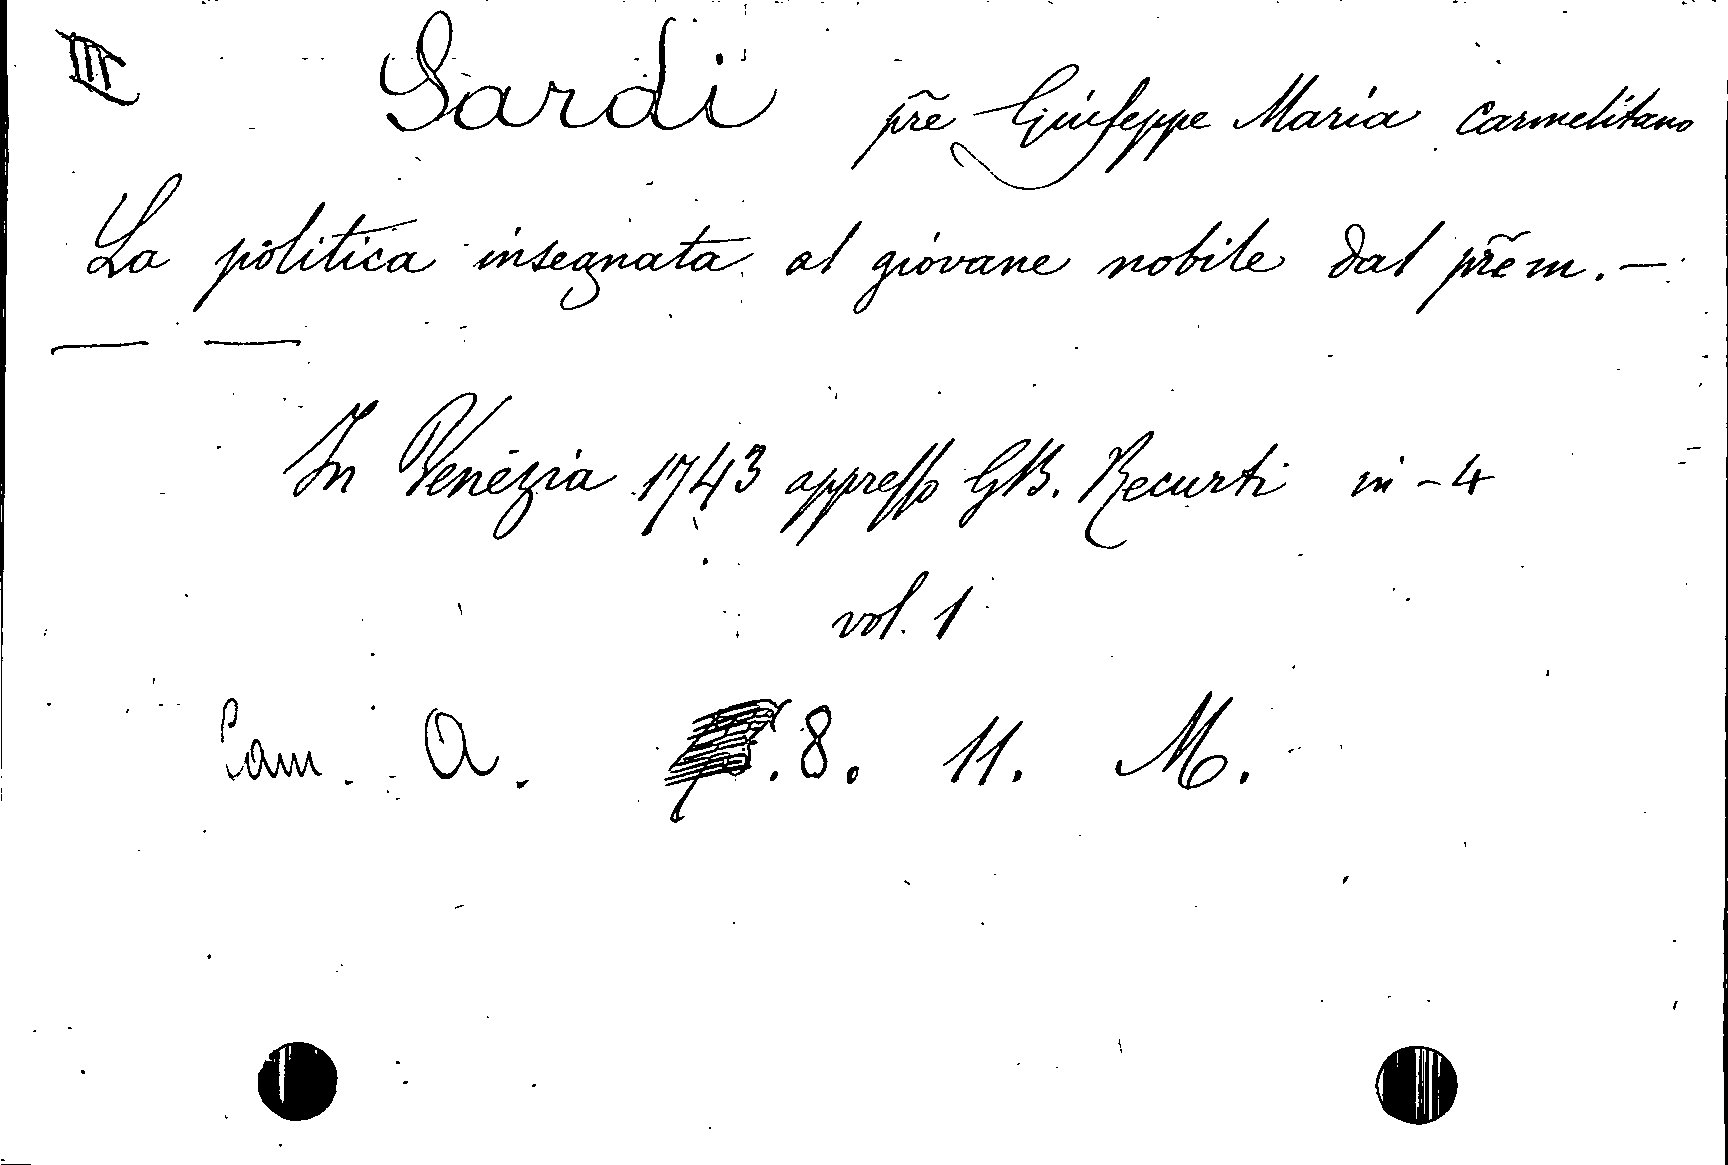 III Sardi pr̃e Giuseppe Maria Carmelitano
La politica insegnata al giovane nobile dal pr̃em. —
— —
In Venezia 1743 appresso GB. Recurti in-4
vol. 1
Cam. A. .8. 11. M.